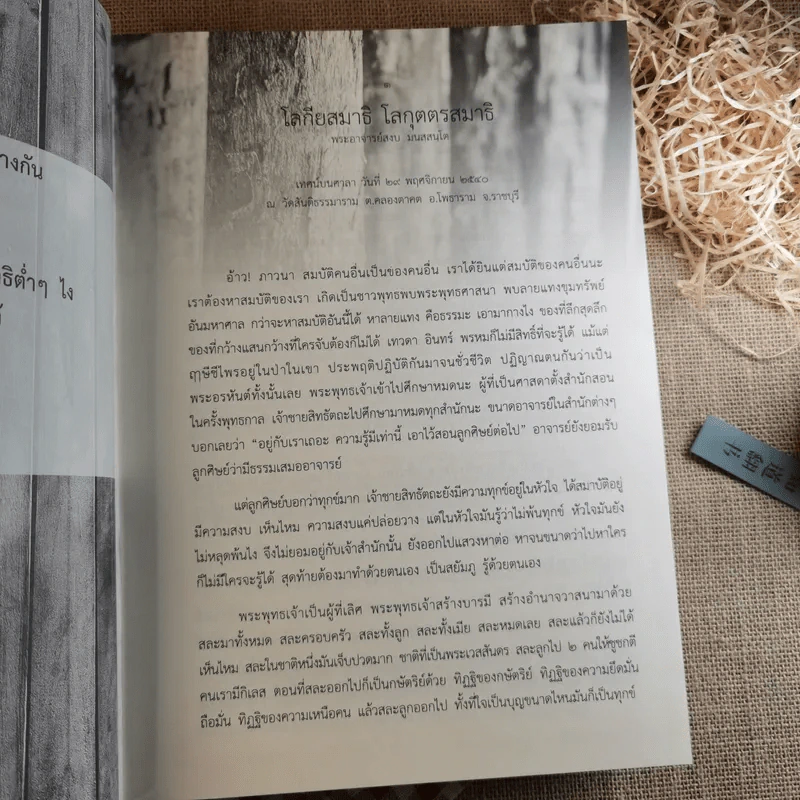 างกัน
ธิต่ำๆ ไง
๑
โลกียสมาธิ โลกุตตรสมาธิ
พระอาจารย์สงบ มนสฺสนฺโต
เทศน์บนศาลา วันที่ ๒๙ พฤศจิกายน ๒๕๔๐
ณ วัดสันติธรรมาราม ต.คลองตาคต อ.โพธาราม จ.ราชบุรี
อ้าว! ภาวนา สมบัติคนอื่นเป็นของคนอื่น เราได้ยินแต่สมบัติของคนอื่นนะ
เราต้องหาสมบัติของเรา เกิดเป็นชาวพุทธพบพระพุทธศาสนา พบลายแทงขุมทรัพย์
อันมหาศาล กว่าจะหาสมบัติอันนี้ได้ หาลายแทง คือธรรมะ เอามากางไง ของที่ลึกสุดลึก
ของที่กว้างแสนกว้างที่ใครจับต้องก็ไม่ได้ เทวดา อินทร์ พรหมก็ไม่มีสิทธิ์ที่จะรู้ได้ แม้แต่
ฤๅษีชีไพรอยู่ในป่าในเขา ประพฤติปฏิบัติกันมาจนชั่วชีวิต ปฏิญาณตนกันว่าเป็น
พระอรหันต์ทั้งนั้นเลย พระพุทธเจ้าเข้าไปศึกษาหมดนะ ผู้ที่เป็นศาสดาตั้งสำนักสอน
ในครั้งพุทธกาล เจ้าชายสิทธัตถะไปศึกษามาหมดทุกสำนักนะ ขนาดอาจารย์ในสำนักต่างๆ
บอกเลยว่า “อยู่กับเราเถอะ ความรู้มีเท่านี้ เอาไว้สอนลูกศิษย์ต่อไป” อาจารย์ยังยอมรับ
ลูกศิษย์ว่ามีธรรมเสมออาจารย์
แต่ลูกศิษย์บอกว่าทุกข์มาก เจ้าชายสิทธัตถะยังมีความทุกข์อยู่ในหัวใจ ได้สมาบัติอยู่
มีความสงบ เห็นไหม ความสงบแค่ปล่อยวาง แต่ในหัวใจมันรู้ว่าไม่พ้นทุกข์ หัวใจมันยัง
ไม่หลุดพ้นไง จึงไม่ยอมอยู่กับเจ้าสำนักนั้น ยังออกไปแสวงหาต่อ หาจนขนาดว่าไปหาใคร
ก็ไม่มีใครจะรู้ได้ สุดท้ายต้องมาทำด้วยตนเอง เป็นสยัมภู รู้ด้วยตนเอง
พระพุทธเจ้าเป็นผู้ที่เลิศ พระพุทธเจ้าสร้างบารมี สร้างอำนาจวาสนามาด้วย
สละมาทั้งหมด สละครอบครัว สละทั้งลูก สละทั้งเมีย สละหมดเลย สละแล้วก็ยังไม่ได้
เห็นไหม สละในชาติหนึ่งมันเจ็บปวดมาก ชาติที่เป็นพระเวสสันดร สละลูกไป ๒ คนให้ชูชกตี
คนเรามีกิเลส ตอนที่สละออกไปก็เป็นกษัตริย์ด้วย ทิฏฐิของกษัตริย์ ทิฏฐิของความยึดมั่น
ถือมั่น ทิฏฐิของความเหนือคน แล้วสละลูกออกไป ทั้งที่ใจเป็นบุญขนาดไหนมันก็เป็นทุกข์